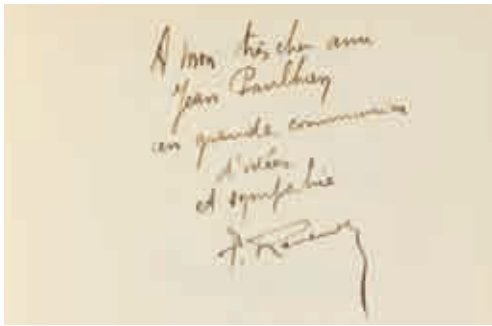 A mon très cher ami
Jean Paulhan
en grande communion
d'idées
et sympathie